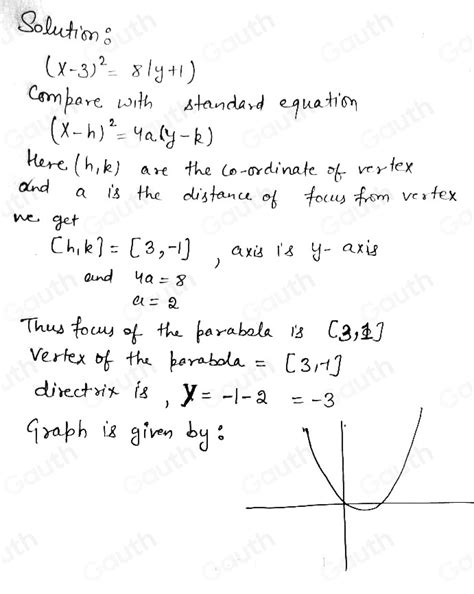 Solution:
(x-3)² = 8(y+1)
Compare with standard equation
(x-h)² = 4a(y-k)
Here (h,k) are the co-ordinate of vertex
and a is the distance of focus from vertex
we get
[h,k] = [3,-1] , axis is y-axis
and 4a = 8
a = 2
Thus focus of the parabola is [3,1]
Vertex of the parabola = [3,-1]
directrix is , y = -1-2 = -3
Graph is given by:
Gauth